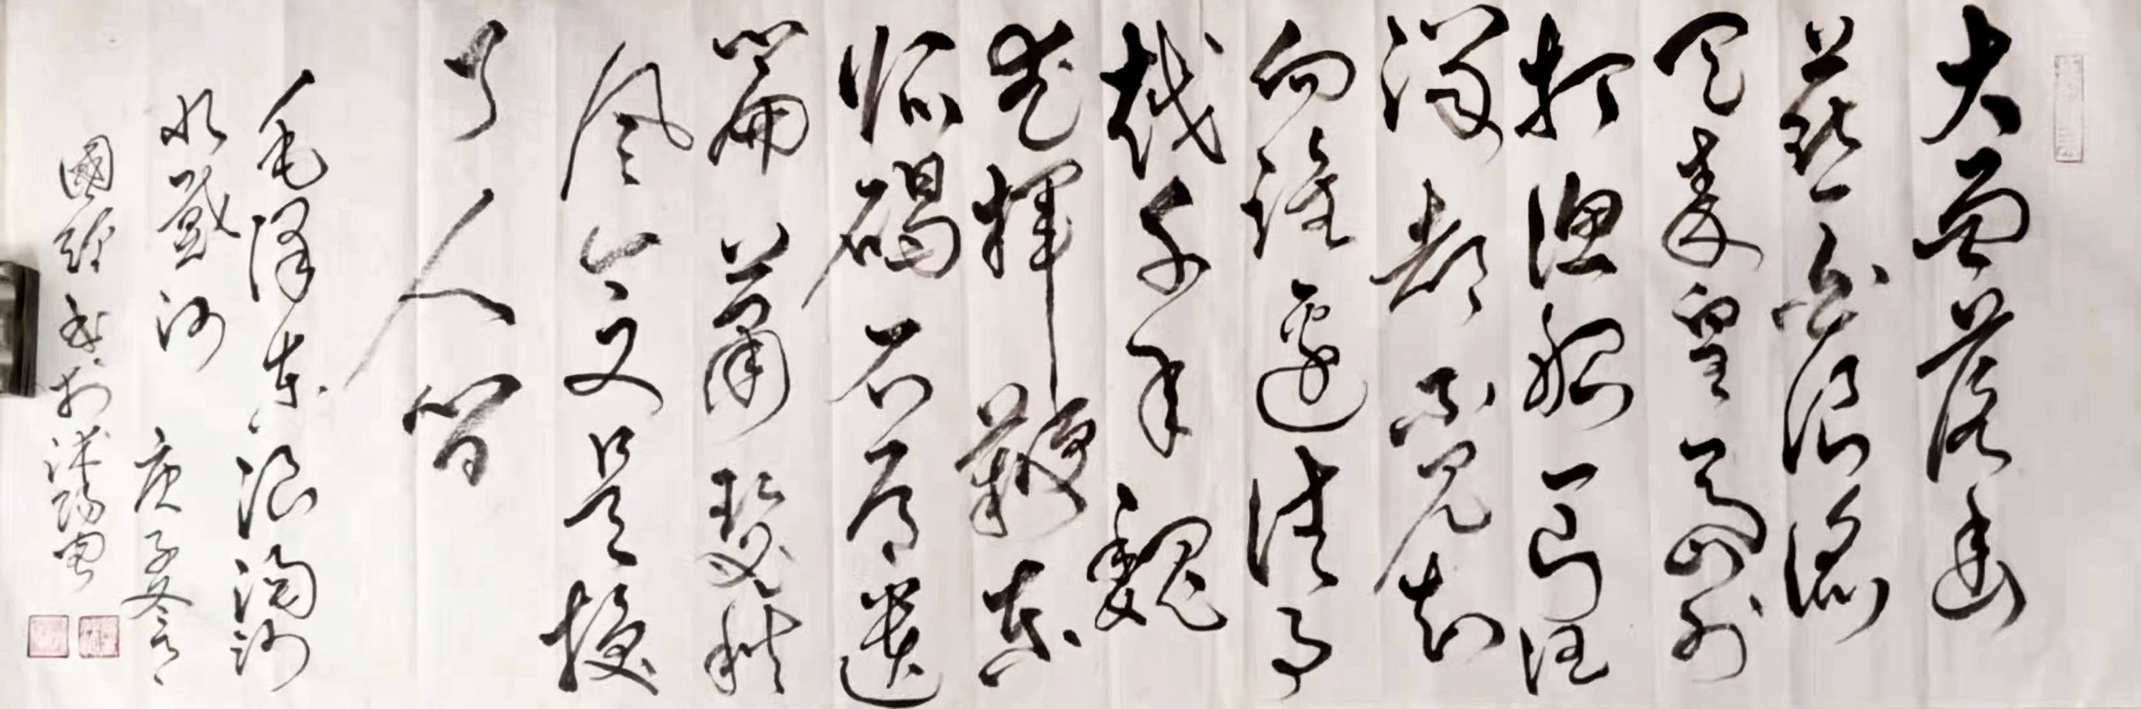 大雨落幽
燕白浪滔
天秦皇島外
打漁船一片汪
洋都不見知
向誰邊往事
越千年魏
武揮鞭東
臨碣石有遺
篇蕭瑟秋
風今又是換
了人間
毛澤東浪淘沙
北戴河 庚子
國